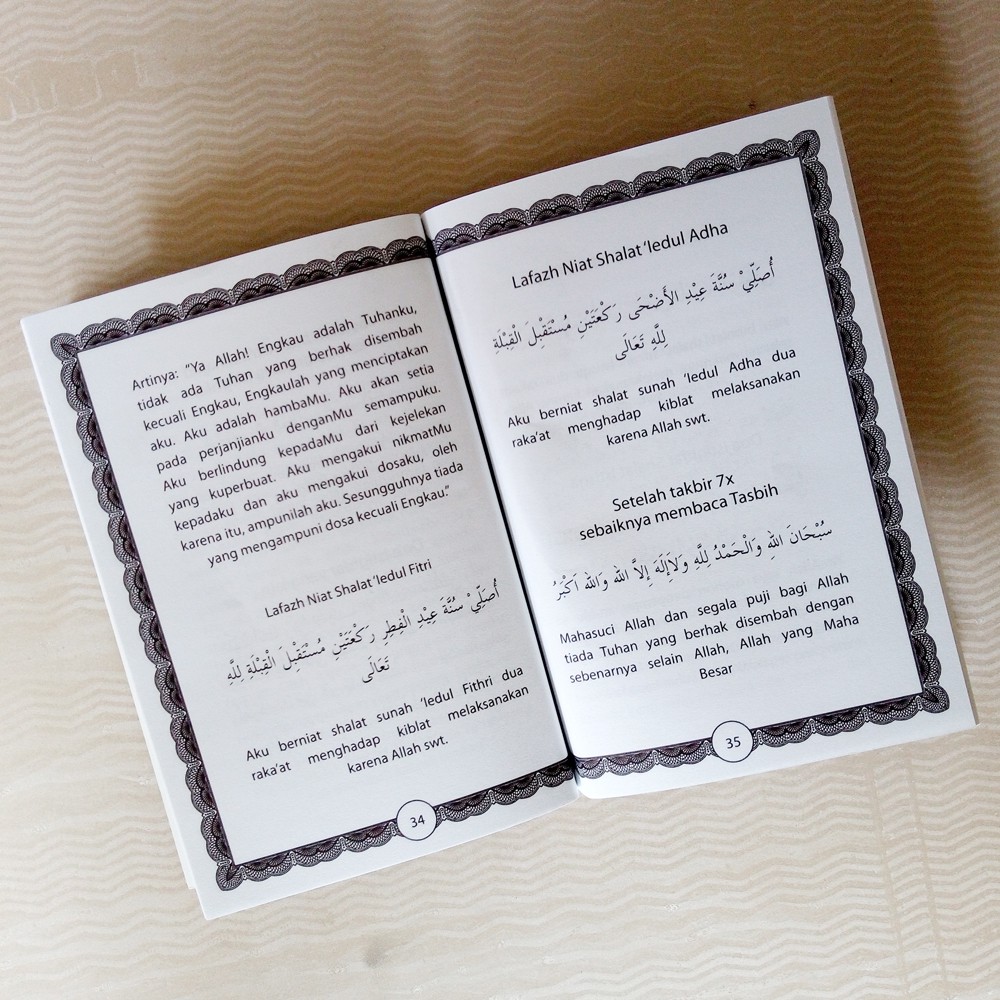 Artinya: "Ya Allah! Engkau adalah Tuhanku,
tidak ada Tuhan yang berhak disembah
kecuali Engkau, Engkaulah yang menciptakan
aku. Aku adalah hambaMu. Aku akan setia
pada perjanjianku denganMu semampuku.
Aku berlindung kepadaMu dari kejelekan
yang kuperbuat. Aku mengakui nikmatMu
kepadaku dan aku mengakui dosaku, oleh
karena itu, ampunilah aku. Sesungguhnya tiada
yang mengampuni dosa kecuali Engkau."
Lafazh Niat Shalat 'Iedul Fitri
أُصَلِّيْ سُنَّةَ عِيْدِ الْفِطِرِ رَكْعَتَيْنِ مُسْتَقْبِلَ الْقِبْلَةِ لِلَّهِ
تَعَالَى
Aku berniat shalat sunah 'Iedul Fithri dua
raka'at menghadap kiblat melaksanakan
karena Allah swt.
34
Lafazh Niat Shalat 'Iedul Adha
أُصَلِّيْ سُنَّةَ عِيْدِ الأَضْحَى رَكْعَتَيْنِ مُسْتَقْبِلَ الْقِبْلَةِ
لِلَّهِ تَعَالَى
Aku berniat shalat sunah 'Iedul Adha dua
raka'at menghadap kiblat melaksanakan
karena Allah swt.
Setelah takbir 7x
sebaiknya membaca Tasbih
سُبْحَانَ اللهِ وَالْحَمْدُ لِلَّهِ وَلاَإِلَهَ إِلاَّ اللهُ وَاللهُ اَكْبَرُ
Mahasuci Allah dan segala puji bagi Allah
tiada Tuhan yang berhak disembah dengan
sebenarnya selain Allah, Allah yang Maha
Besar
35